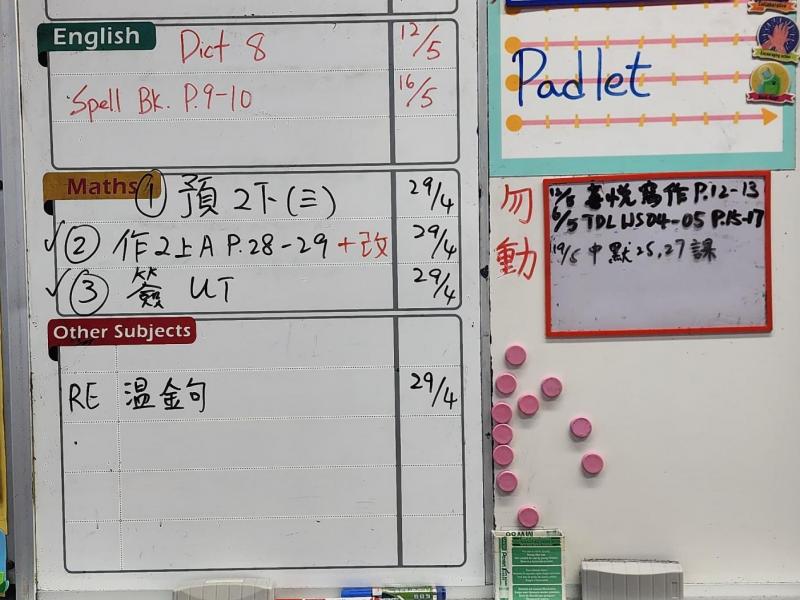 English
Dict 8 12/5
Spell Bk. P.9-10 16/5
Maths
① 預 2下(三) 29/4
✓② 作2上A P.28-29 +改 29/4
✓③ 簽 UT 29/4
Other Subjects
RE 溫金句 29/4
Padlet
勿動
寫作 P.12-13
TDL WS04-05 P.15-17
19/5 中默25,27課